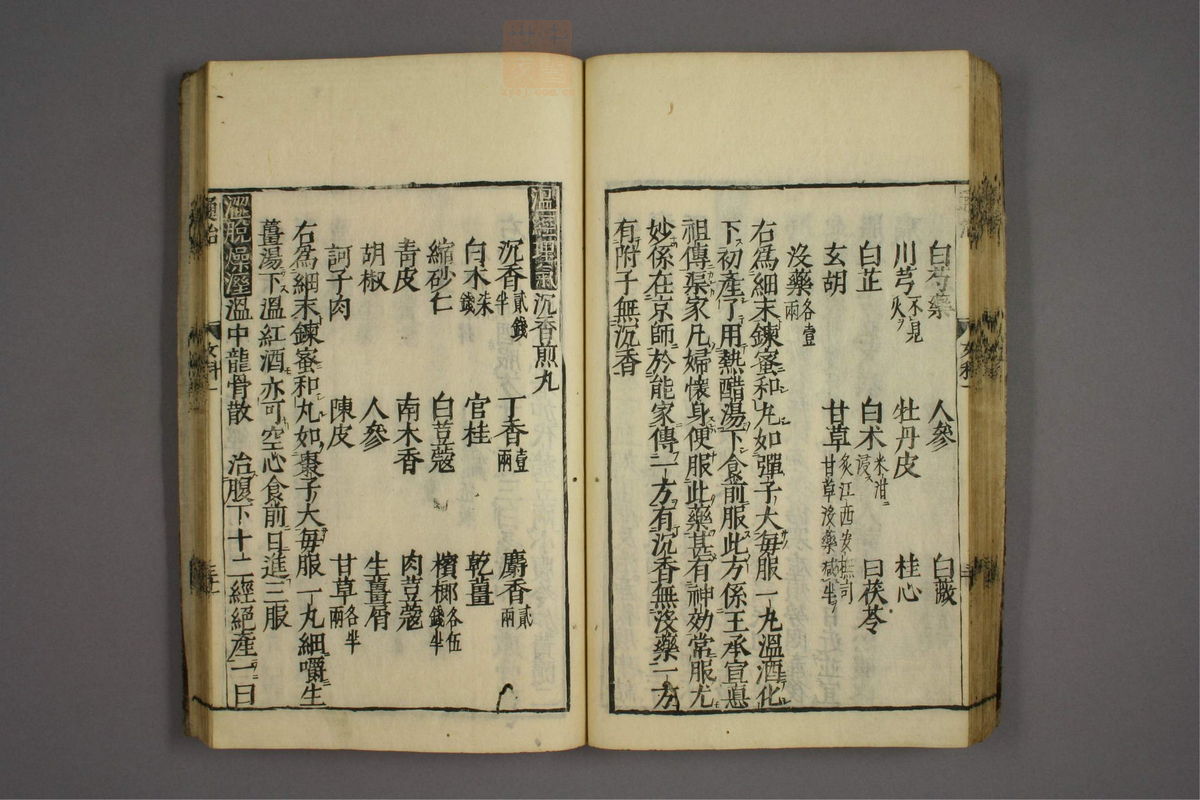 白芍藥 人參 白蘞
川芎不見火ヲ 牡丹皮 桂心
白芷 白朮米泔浸 白茯苓
玄胡 甘草炙江西安撫司甘草沒藥減半
沒藥各壹兩
右爲細末鍊蜜和丸如彈子大毎服一丸溫酒化
下初產了用熱醋湯下食前服此方係王承宣惪
祖傳渠家凡婦懷身便服此藥甚有神効常服尤
妙係在京師於能家傳二方有沉香無沒藥一方
有附子無沉香
溫經理氣沉香煎丸
沉香貳錢半 丁香壹兩 麝香貳兩
白朮柒錢 官桂 乾薑
縮砂仁 白荳蔻 檳榔各伍錢半
青皮 南木香 肉荳蔻
胡椒 人參 生薑屑
訶子肉 陳皮 甘草各半兩
右爲細末鍊蜜和丸如棗子大毎服一丸細嚼生
薑湯下溫紅酒亦可空心食前日進三服
澀脫燥溼溫中龍骨散 治腹下十二經絕產一曰
通治 女科一